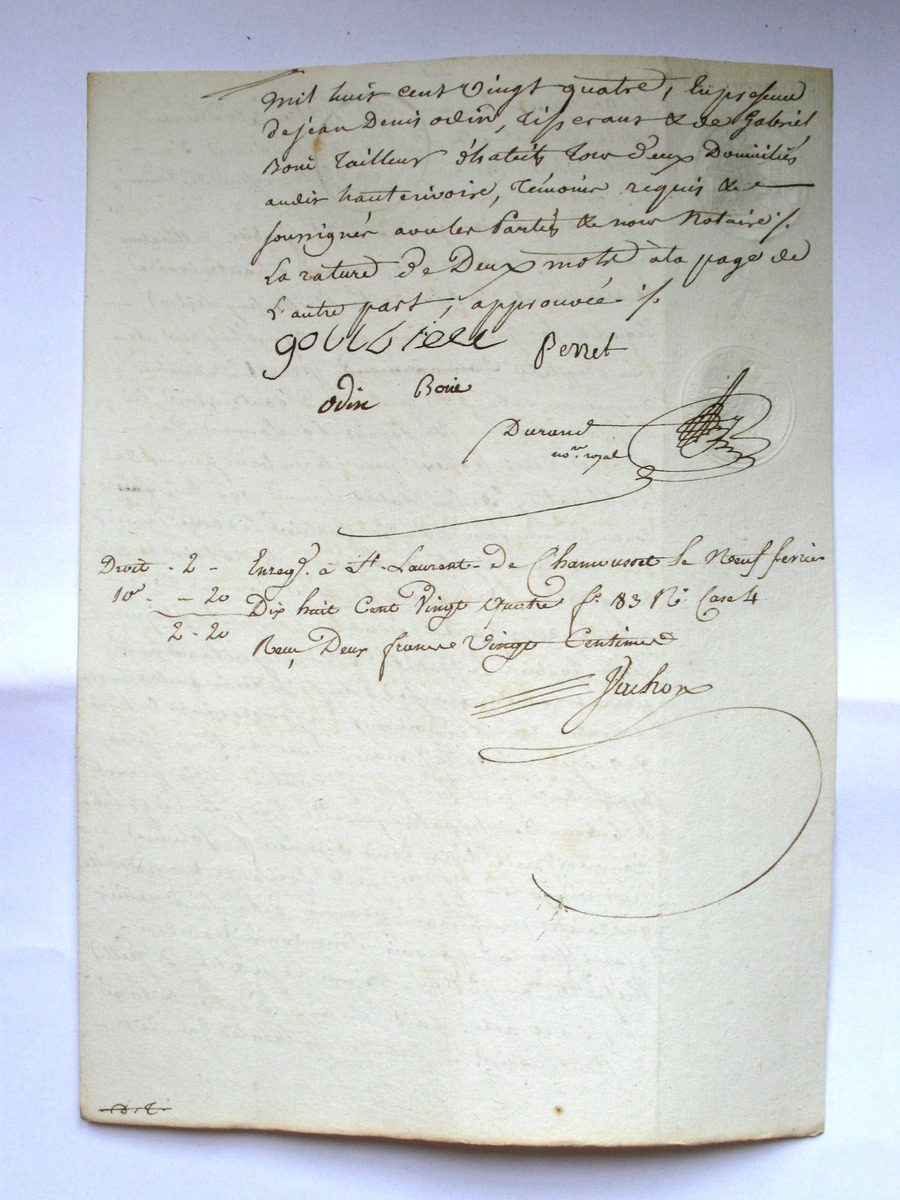 mil huit cent vingt quatre, En presence
de jean Denis odin, tisserant & de Gabriel
Boné tailleur d'habits tous deux Domiciliés
audit hauterivoire, témoins requis &
soussignés avec les Parties & nous Notaire ./.
La rature de Deux mots à la page de
L'autre part, approuvée ./.
Perret
odin Bonie
Durand
no.re royal
Droit - 2 - Enregé. à St. Laurent - De Chamousset le Neuf fevrier
10e - - 20 Dix huit Cent Vingt Quatre f.o 83 R.o Case 4
2 - 20 Recu Deux francs Vingt Centimes